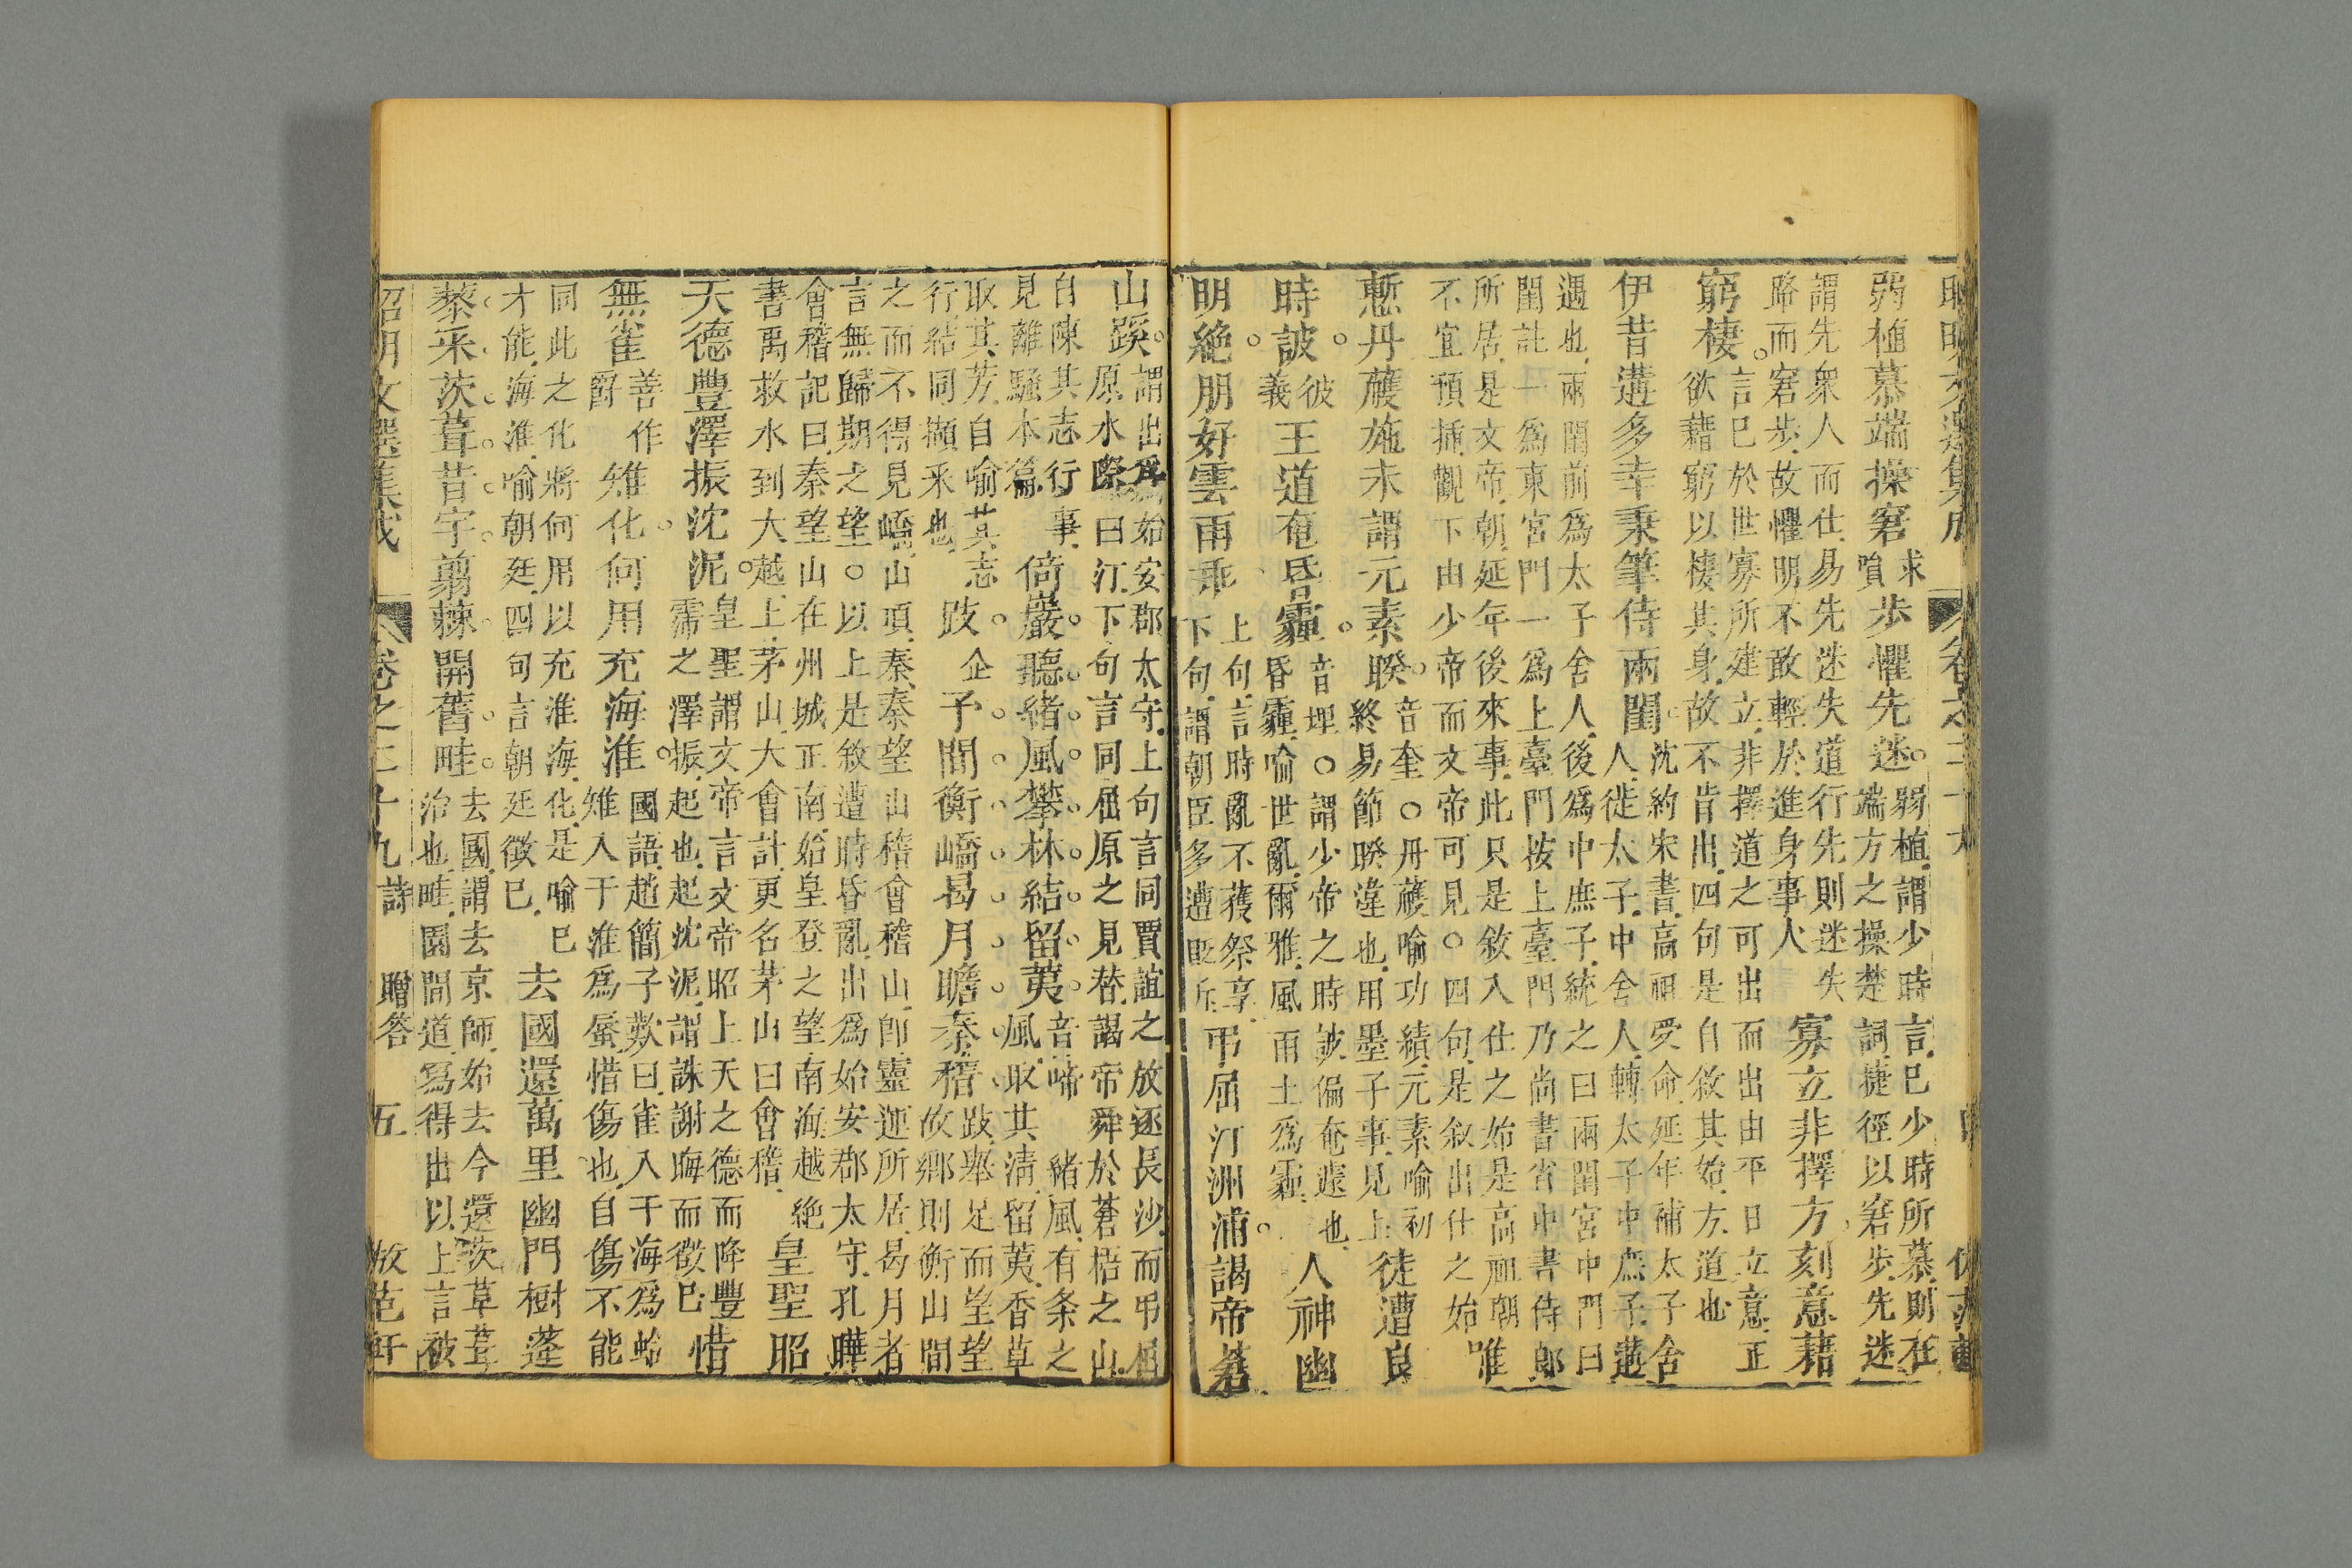 弱植慕端操窘求
隕步懼先迷弱植謂少時言已少時所慕則在
端方之操楚詞捷徑以窘步先迷
謂先衆人而仕易先迷失道行先則迷失
路而窘步故懼明不敢輕於進身事人寡立非擇方刻意藉
窮棲言已於世寡所建立非擇道之可出而出由平日立意正
欲藉窮以棲其身故不肯出四句是自敘其始方道也
伊昔遘多幸秉筆侍兩閨沈約宋書高祖受命延年補太子舍
人徙太子中舍人轉太子中庶子遊
遇也兩閨前爲太子舍人後爲中庶子統之曰兩閨宮中門曰
閨註一爲東宮門一爲上臺門按上臺門乃尚書省中書侍郎
所居是文帝朝延年後來事此只是敘入仕之始是高祖朝
不宜預插觀下由少帝而文帝可見四句是敘出仕之始唯
慙丹雘施未謂元素睽音奎丹雘喻功績元素喻初
終易節睽違也用墨子事見上徒遭良
時詖彼
義王道奄昏霾音埋謂少帝之時詖偏奄遽也
昏霾喻世亂爾雅風雨土爲霾人神幽
明絶朋好雲雨乖上句言時亂不獲祭享
下句謂朝臣多遭貶斥弔屈汀洲浦謁帝蒼
山蹊謂出爲始安郡太守上句言同賈誼之放逐長沙而弔屈
原水際曰汀下句言同屈原之見替謁帝舜於蒼梧之山
自陳其志行事
見離騷本篇倚巖聽緒風攀林結留荑音啼緒風有条之
風取其清留荑香草
取其芳自喻其志
行結同擷采也跂企予間衡嶠曷月瞻秦稽跂舉足而望望
故鄉則衡山間
之而不得見嶠山項秦秦望山稽會稽山卽靈運所居曷月者
言無歸期之望以上是敘遭時昏亂出爲始安郡太守孔曄
會稽記曰秦望山在州城正南始皇登之望南海越絶
書禹救水到大越上茅山大會計更名茅山曰會稽皇聖昭
天德豐澤振沈泥皇聖謂文帝言文帝昭上天之德而降豐
霈之澤振起也起沈泥謂誅謝晦而徵已惜
無雀善作
爵雉化何用充海淮國語趙簡子歎曰雀入于海爲蛤
雉入于淮爲蜃惜傷也自傷不能
同此之化將何用以充淮海化是喻已
才能海淮喻朝廷四句言朝廷徵已去國還萬里幽門樹蓬
藜采茨葺昔宇翦棘開舊畦去國謂去京師始去今還茨草葺
治也畦園間道爲得出以上言被
昭明文選集成 卷之三十九 詩 贈答 五